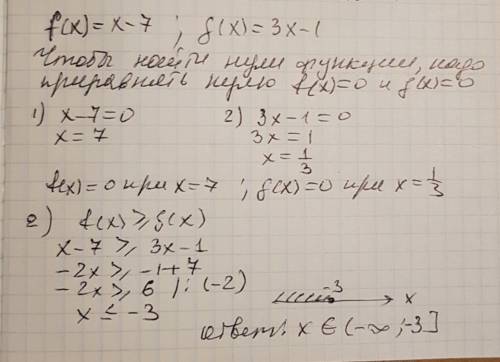 f(x)=x-7 ; g(x)=3x-1
Чтобы найти нули функции, надо
приравнять нулю f(x)=0 и g(x)=0
1) x-7=0 2) 3x-1=0
x=7 3x=1
x=1/3
f(x)=0 при x=7 ; g(x)=0 при x=1/3
2) f(x)≥g(x)
x-7≥3x-1
-2x≥-1+7
-2x≥6 |:(-2)
x≤-3
-3 x
ответ: x∈(-∞;-3]